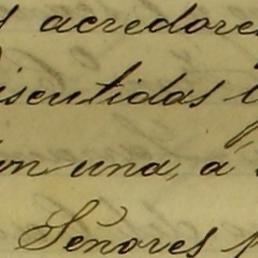 y acredores
discutidas y
en una, á
Señores